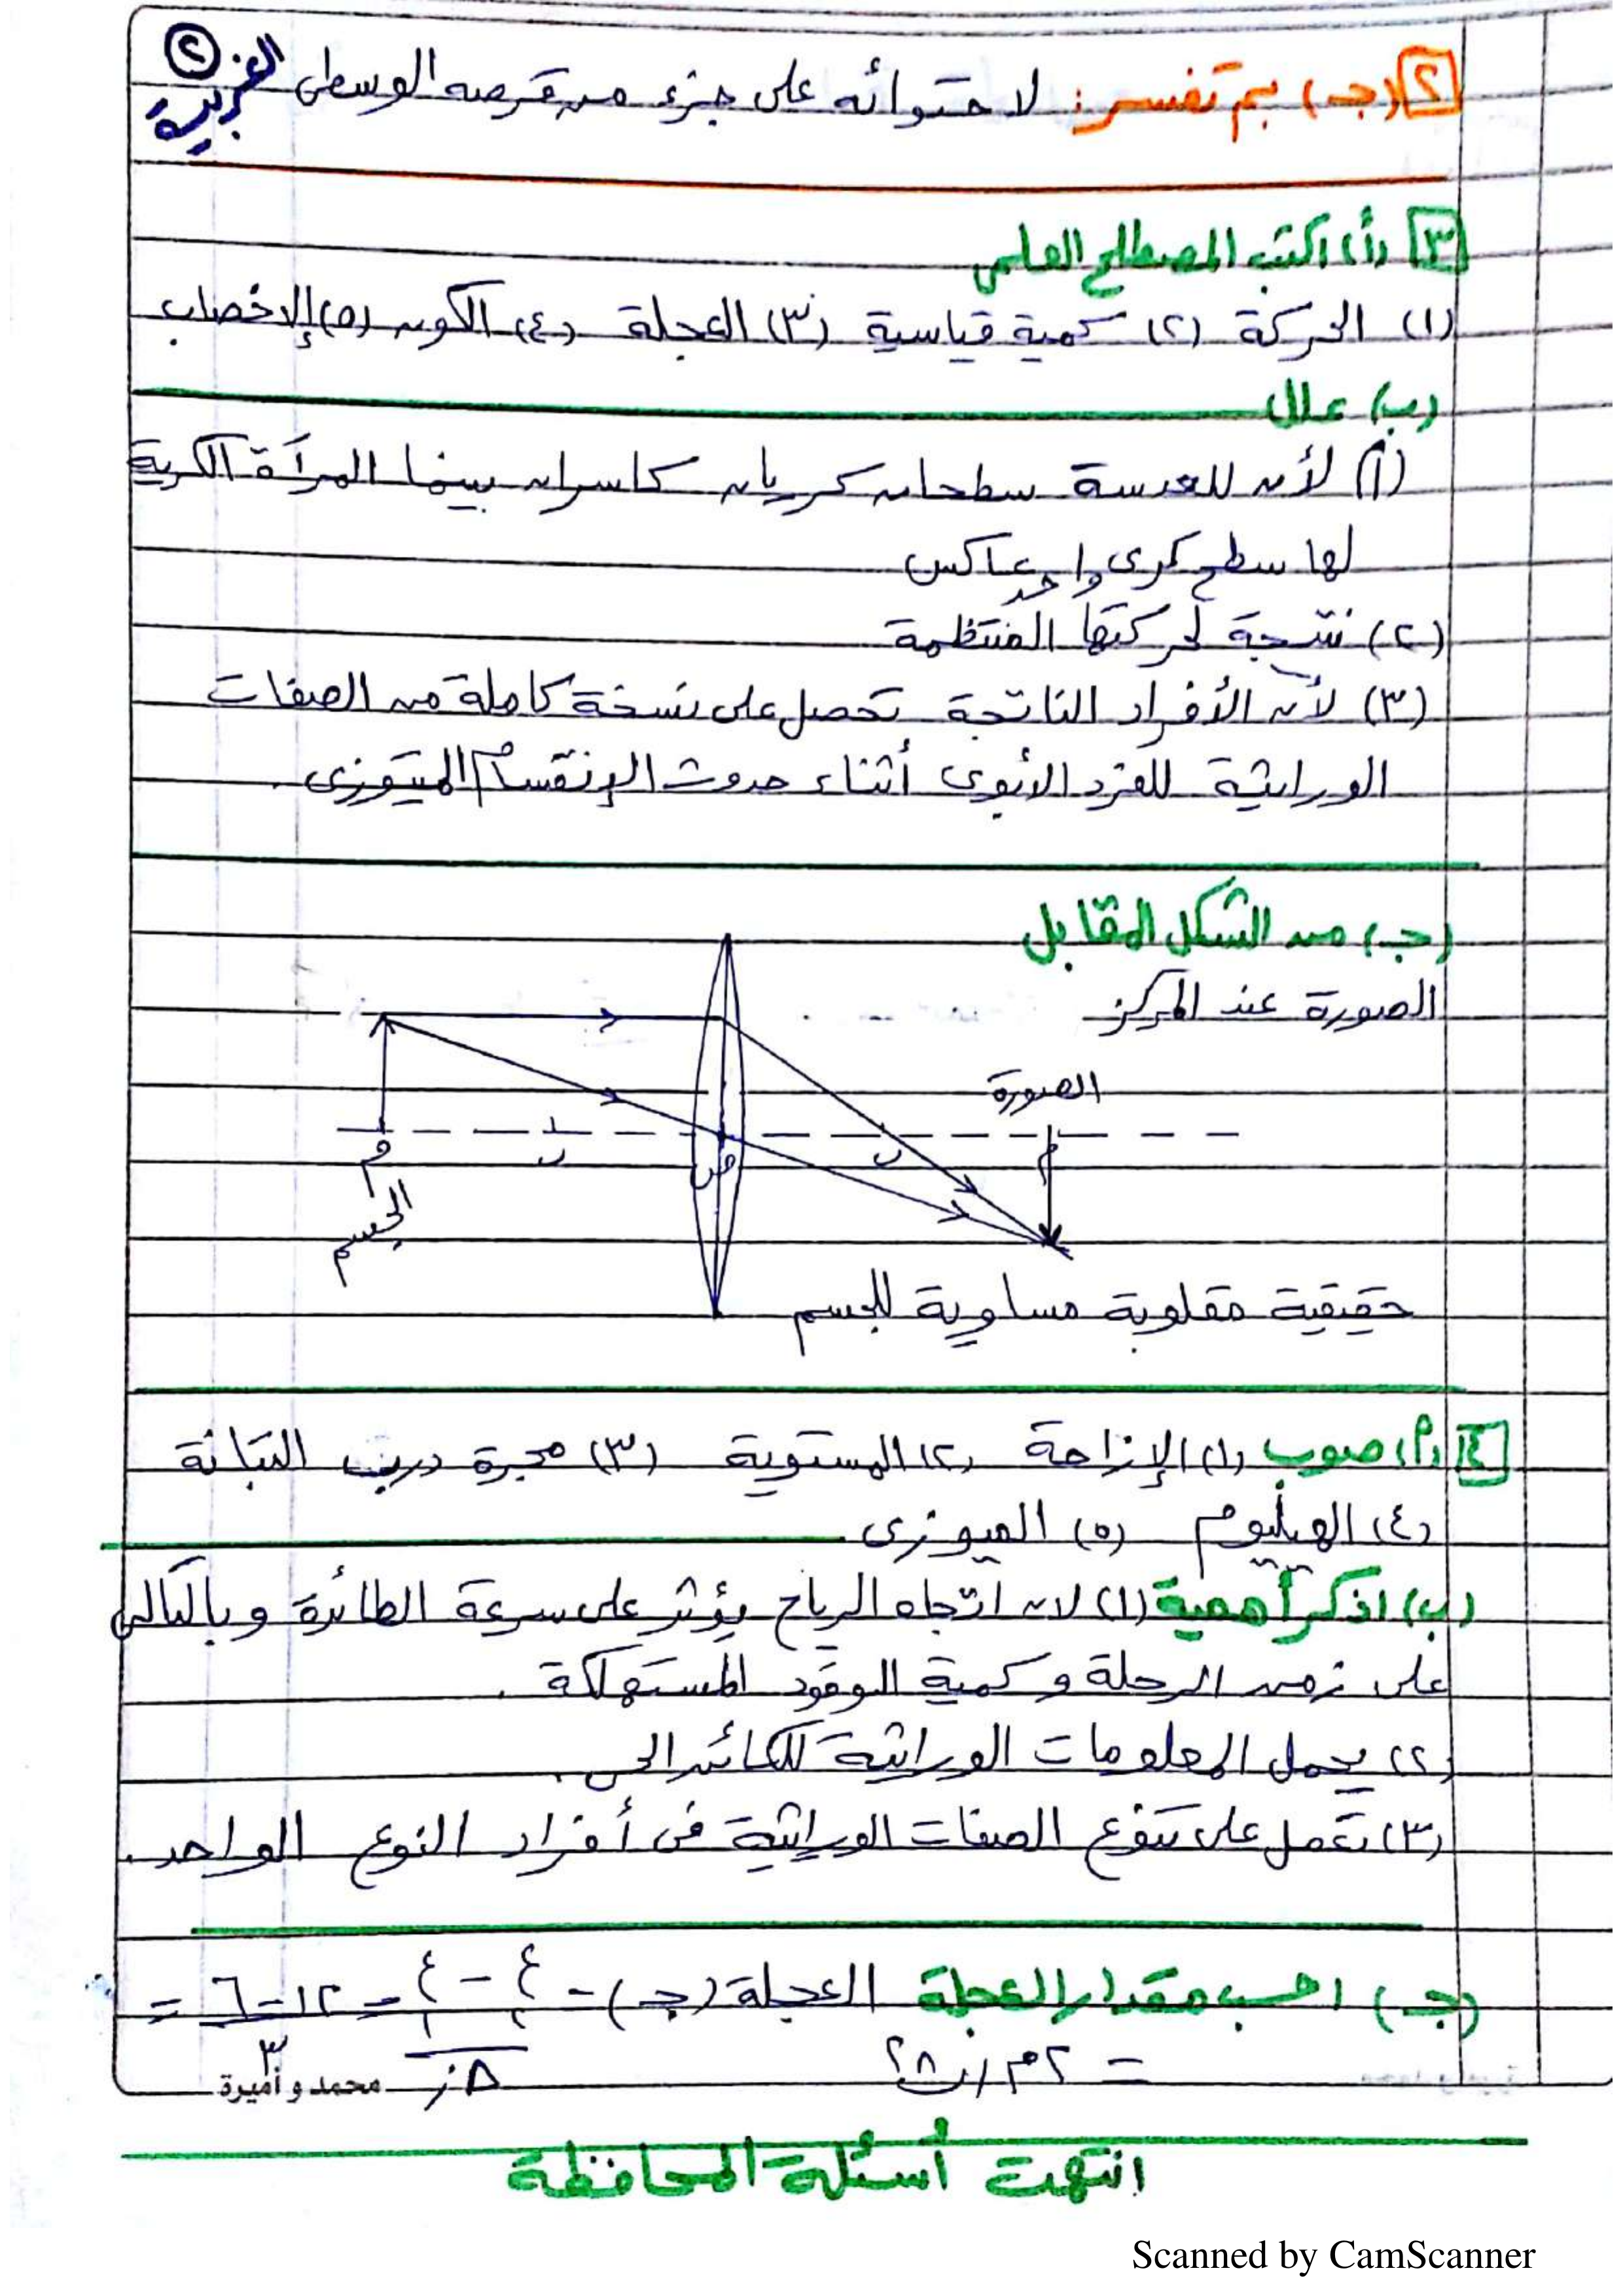 ٢ (جـ) بم تفسر: لاحتوائه على جزء من قرصه الوسطى
الغربية ٢
٣ (أ) اكتب المصطلح العلمى
(١) الحركة (٢) كمية قياسية (٣) العجلة (٤) الكون (٥) الإخصاب
(ب) علل
(١) لأن للعدسة سطحان كريان كاسران بينما المرآة الكرية
لها سطح كرى واحد عاكس
(٢) نتيجة لحركتها المنتظمة
(٣) لأن الأفراد الناتجة تحصل على نسخة كاملة من الصفات
الوراثية للفرد الأبوى أثناء حدوث الإنقسام الميتوزى.
(جـ) من الشكل المقابل
الصورة عند المركز
الصورة
م ب ص ب م
الجسم
حقيقية مقلوبة مساوية للجسم
٤ (أ) صوب (١) الإزاحة (٢) المستوية (٣) مجرة درب التبانة
(٤) الهيليوم (٥) الميوزى
(ب) اذكر أهمية (١) لان اتجاه الرياح يؤثر على سرعة الطائرة وبالتالى
على زمن الرحلة وكمية الوقود المستهلكة.
(٢) يحمل المعلومات الوراثية للكائن الحى.
(٣) تعمل على تنوع الصفات الوراثية فى أفراد النوع الواحد.
(جـ) احسب مقدار العجلة العجلة (جـ) = ع٢ - ع١ / Δز = ١٢ - ٦ / ٣ =
= ٢ م/ث٢
محمد و أميرة
انتهت أسئلة المحافظة
Scanned by CamScanner